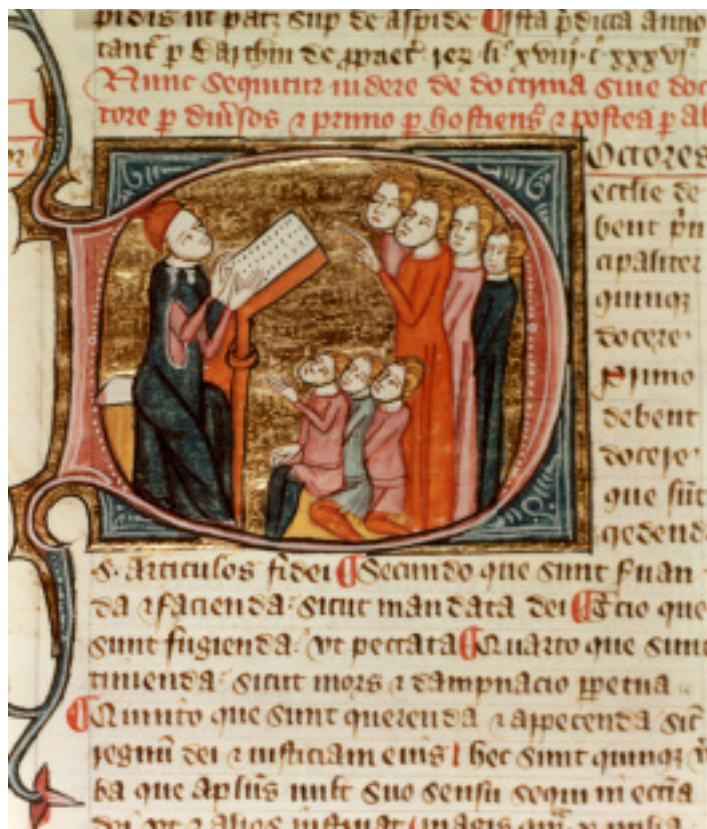 pidis ut patz sup de aspide ¶ Ista pdicta anno
tant p
Nunc sequitur uidere de doctrina siue doc
tore p diuisos ⁊ primo p hostiens ⁊ postea p
Doctores
ecclie de
bent pn
cipaliter
quinqꝫ
docere
primo
debent
docere
que sūt
credend
s. articulos fidei ¶ Secundo que sunt
da ⁊ facienda sicut mandata dei ¶ Tcio que
sunt fugienda vt peccata ¶ Quarto que sunt
timenda sicut mors ⁊ dampnacio ppetua
¶ Quinto que sunt querenda ⁊ appetenda sic
regnū dei ⁊ iusticiam eius hec sunt quinqꝫ v
ba que aplus uult suo sensu sequi in ecctia